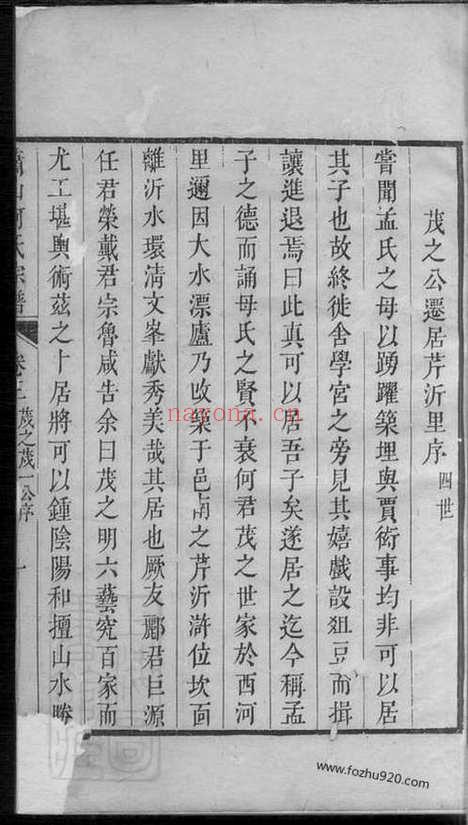 茂之公遷居芹沂里序 四世
嘗聞孟氏之母以踴躍築埋與賈術事均非可以居
其子也故終徙舍學宮之旁見其嬉戲設俎豆而揖
讓進退焉曰此真可以居吾子矣遂居之迄今稱孟
子之德而誦母氏之賢不衰何君茂之世家於西河
里邇因大水漂廬乃改築于邑南之芹沂滸位坎面
離沂水環清文峯獻秀美哉其居也厥友酈君巨源
任君榮戴君宗魯咸告余曰茂之明六藝究百家而
尤工堪輿術茲之卜居將可以鍾陰陽和擅山水勝
蕭山何氏宗譜 卷三 茂之茂一公序 一
nayona.cn
www.fozhu920.com